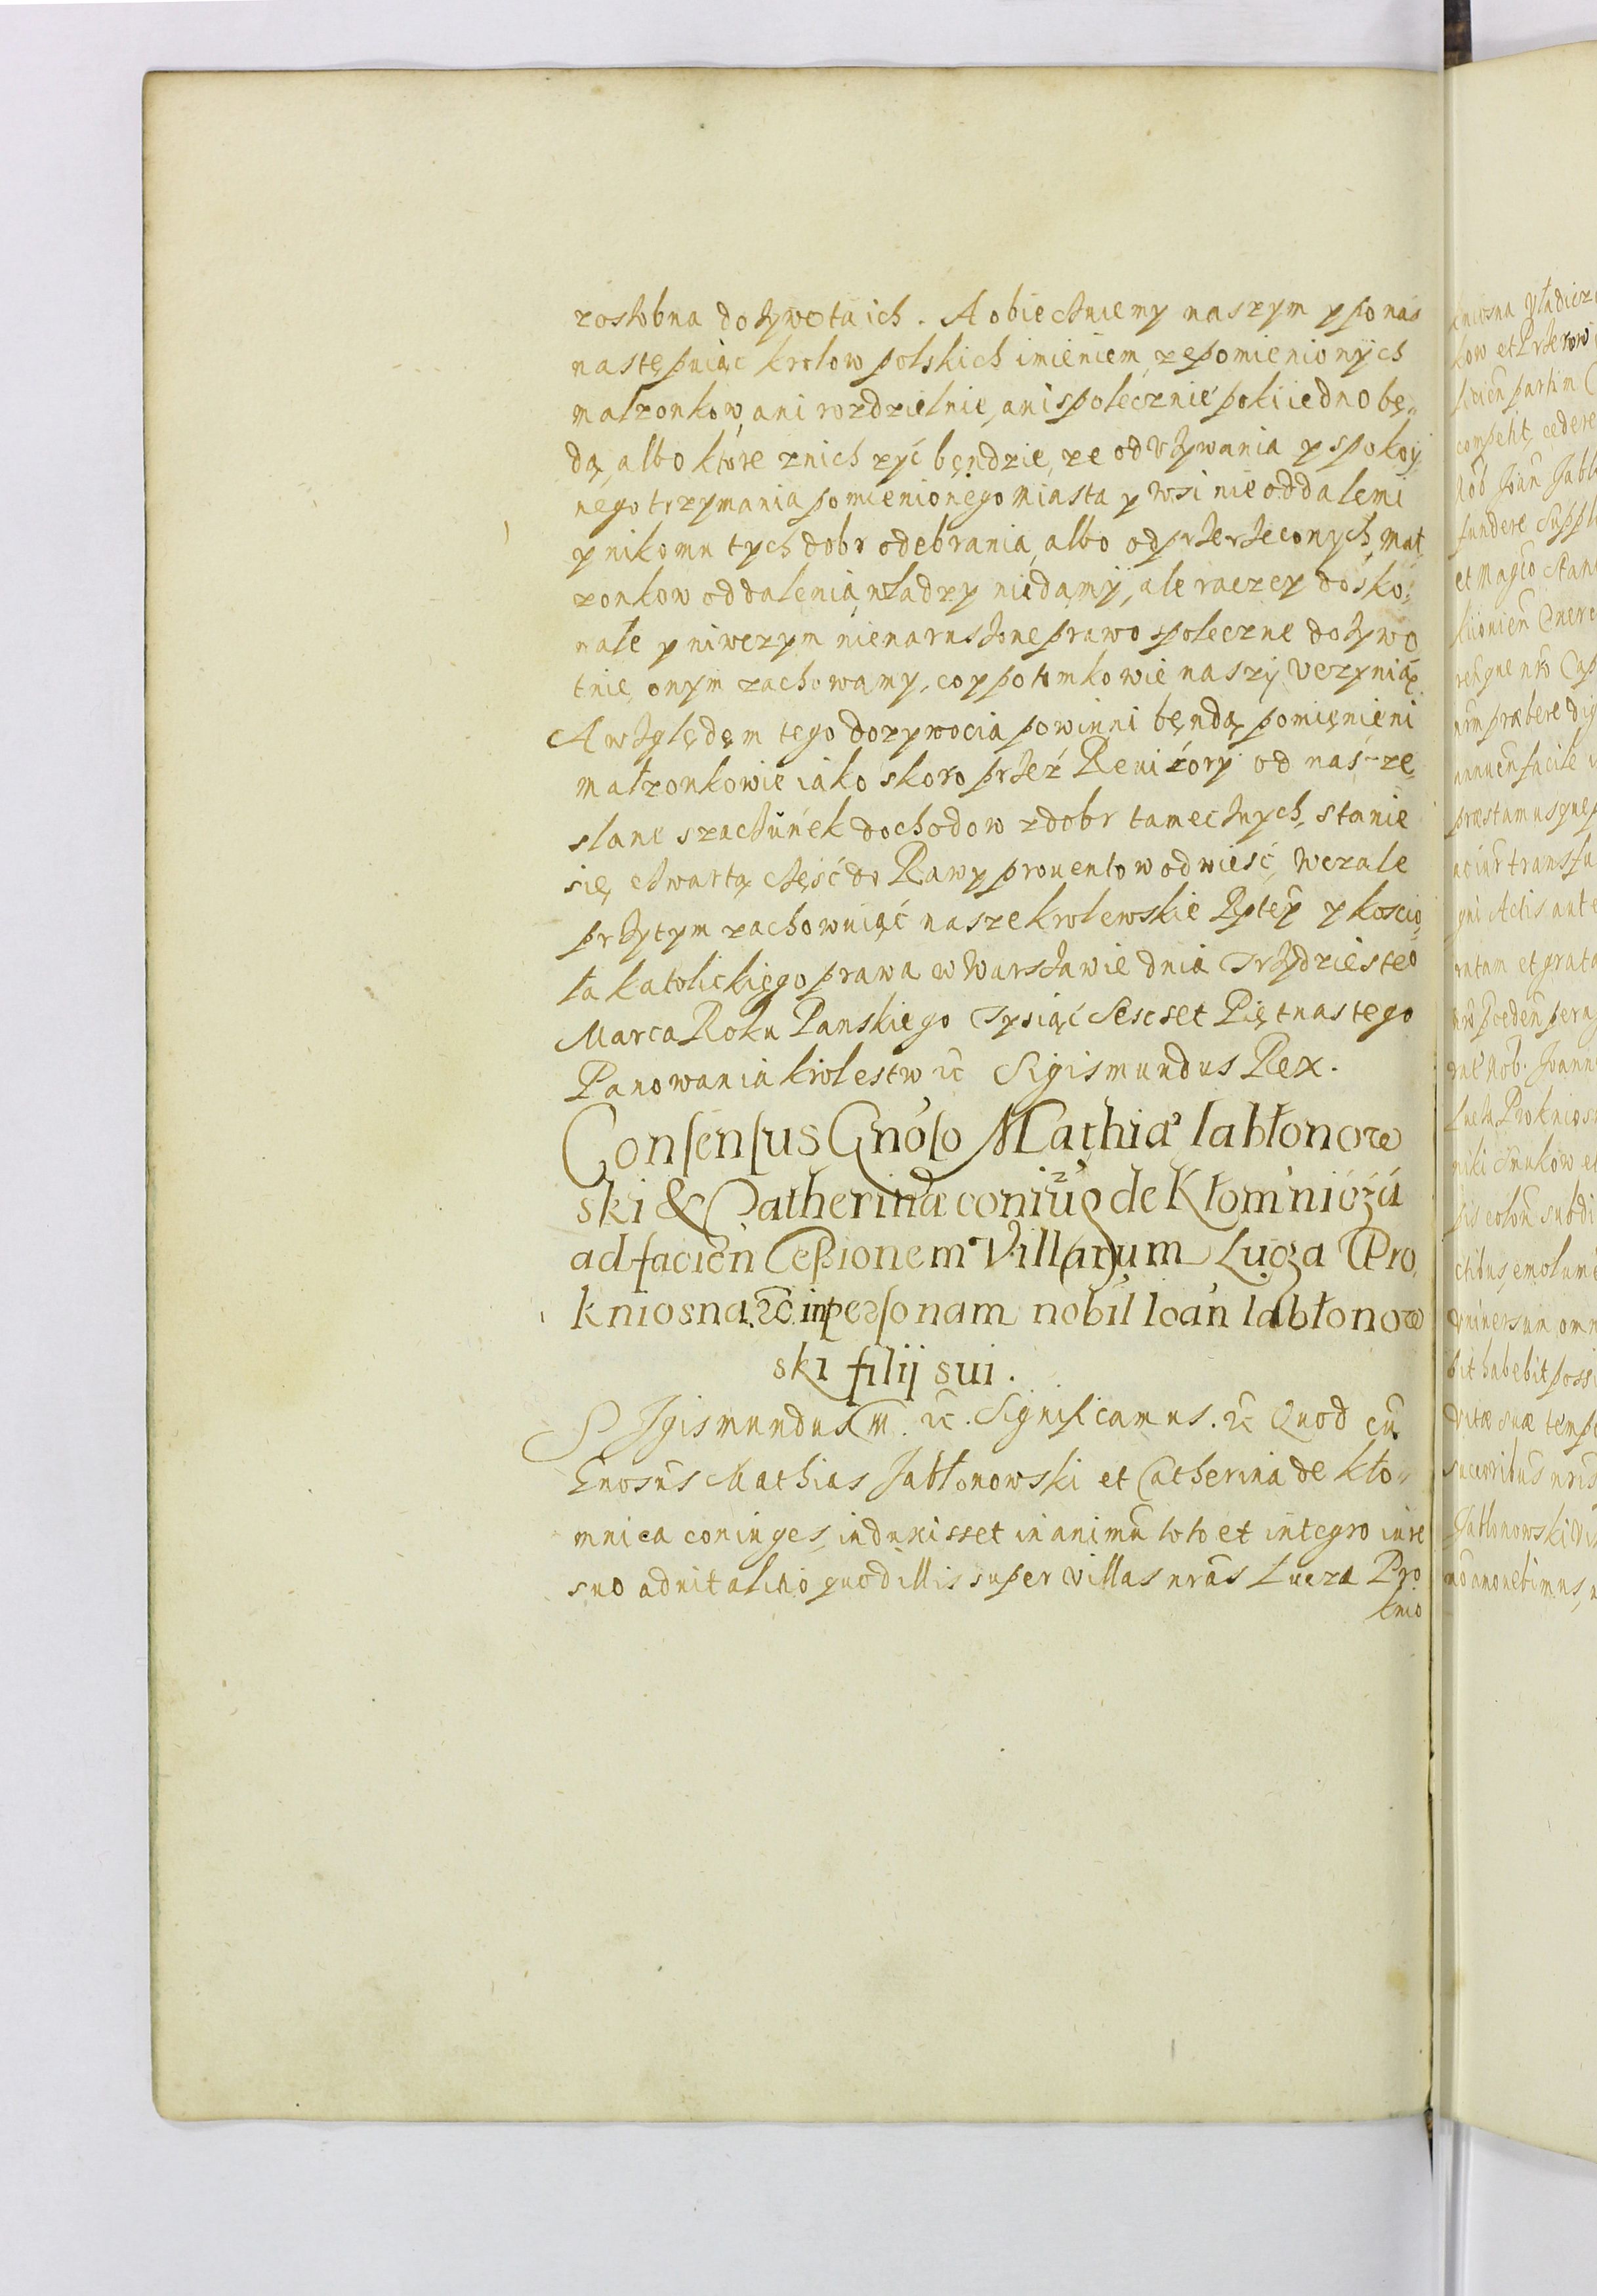 zosobna do żywota ich. A obiecżuiemy naszym y po nas
następuiąc krolow polskich imieniem, ze pomienionych
małzonkow, ani rozdzielnie, ani społecznie poki iedno bę„
dą, albo ktore znich zyć będzie, ze od używania y spokoy„
nego trzymania pomienionego miasta y wsi nie oddalemi
y nikomu tych dobr odebrania, albo od prżerżeconych mał„
zonkow oddalenia, władzy niedamy, ale raczey dosko„
nałe y niwczym nienarusżone prawo społeczne dożywo„
tnie onym zachowamy, co y potomkowie naszy uczynią.
A wżględem tego dozywocia powinni będą pomienieni
małzonkowie iako skoro przez Reuizory od nas ze„
słane szacżunek dochodow z dobr tamecżnych, stanie
się, cżwartą cżęść do Rawy prouentow odwieść, wczale
prżytym zachowuiąć nasze krolewskie Rptey y kościo„
ła katolickiego prawa w Warsżawie dnia Trżydziesteo
Marca Roku Panskiego Tysiąć Sescset Piętnastego
Panowania krolestw ꝛc Sigismundus Rex.
Consensus Gnoso Mathiæ Iabłonow
ski & Catherinæ coniug de Kłomnicża
ad facień Ceßionem Villarum Lucza Pro„
kniosna ꝛc in personam nobil Ioań Iabłonow
ski filij sui.
SIgismundus III. ꝛc. Significamus. ꝛc Quod cū
Gnosus Mathias Jabłonowski et Catherina de Kło„
mnica coniuges, induxisset in animū toto et integro iure
suo aduitalitio quod illis super villas nrās Lucza Pro„
knio

kniosna
kow et
partim
competit, cedere
Nob Joan Jabł
fundere
et Magco Stan

Cap
præbere dig
facile
præstamusque
transfu
Actis ante
ratam et grata

Nob. Joann
Prokniosn

subdi
emolume
omn
habebit possi
vitæ suæ temp
successoribus nris
Jabłonowski vi